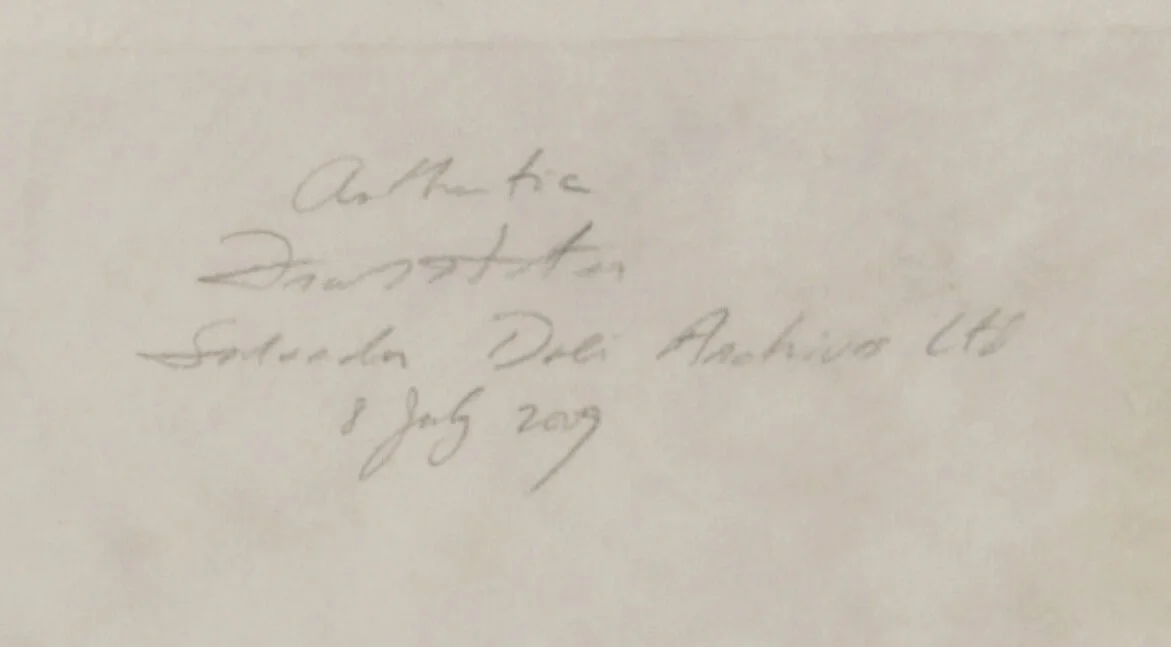 Authentic
Salvador Dali Archives Ltd
8 July 2009